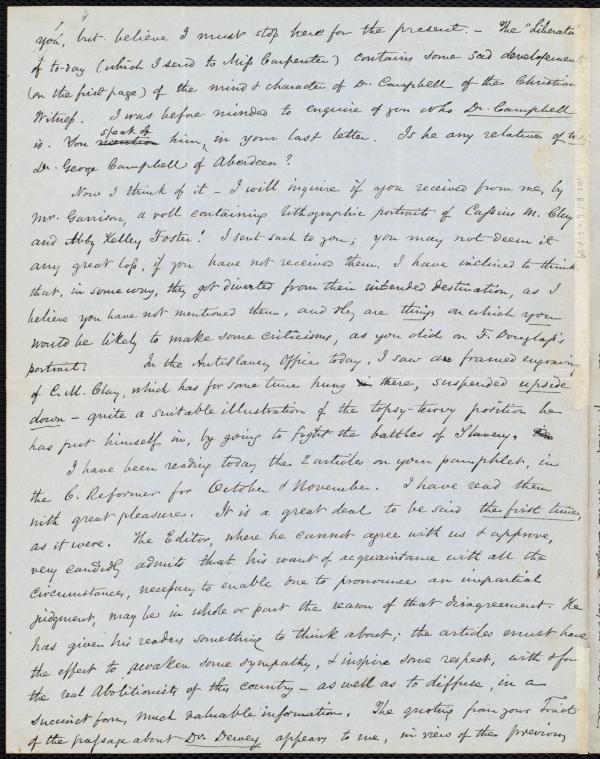 you, but believe I must stop here for the present. - The "Liberator"
of to-day (which I send to Miss Carpenter) contains some sad developements
(on the first page) of the mind & character of Dr. Campbell of the Christian
Witness. I was before minded to enquire of you who Dr. Campbell
is. You mention speak of him, in your last letter. Is he any relative of
Dr. George Campbell of Aberdeen?
Now I think of it - I will inquire if you received from me, by
Mr. Garrison, a roll containing lithographic portraits of Cassius M. Clay
and Abby Kelley Foster? I sent such to you; you may not deem it
any great loss, if you have not received them. I have inclined to think
that, in some way, they got diverted from their intended destination, as I
believe you have not mentioned them, and they are things on which you
would be likely to make some criticisms, as you did on F. Douglass's
portrait. In the AntiSlavery Office today, I saw a framed engraving
of C. M. Clay, which has for some time hung in there, suspended upside
down - quite a suitable illustration of the topsy-turvy position he
has put himself in, by going to fight the battles of Slavery.
I have been reading today the 2 articles on your pamphlet, in
the C. Reformer for October & November. I have read them
with great pleasure. It is a great deal to be said the first time,
as it were. The Editor, where he cannot agree with us & approve,
very candidly admits that his want of acquaintance with all the
circumstances, necessary to enable one to pronounce an impartial
judgment, may be in whole or part the reason of that disagreement. He
has given his readers something to think about; the articles must have
the effect to awaken some sympathy, & inspire some respect, with & for
the real Abolitionists of this country - as well as to diffuse, in a
succinct form, much valuable information. The quoting from your Tract
of the passage about Dr. Dewey appears to me, in view of the previous